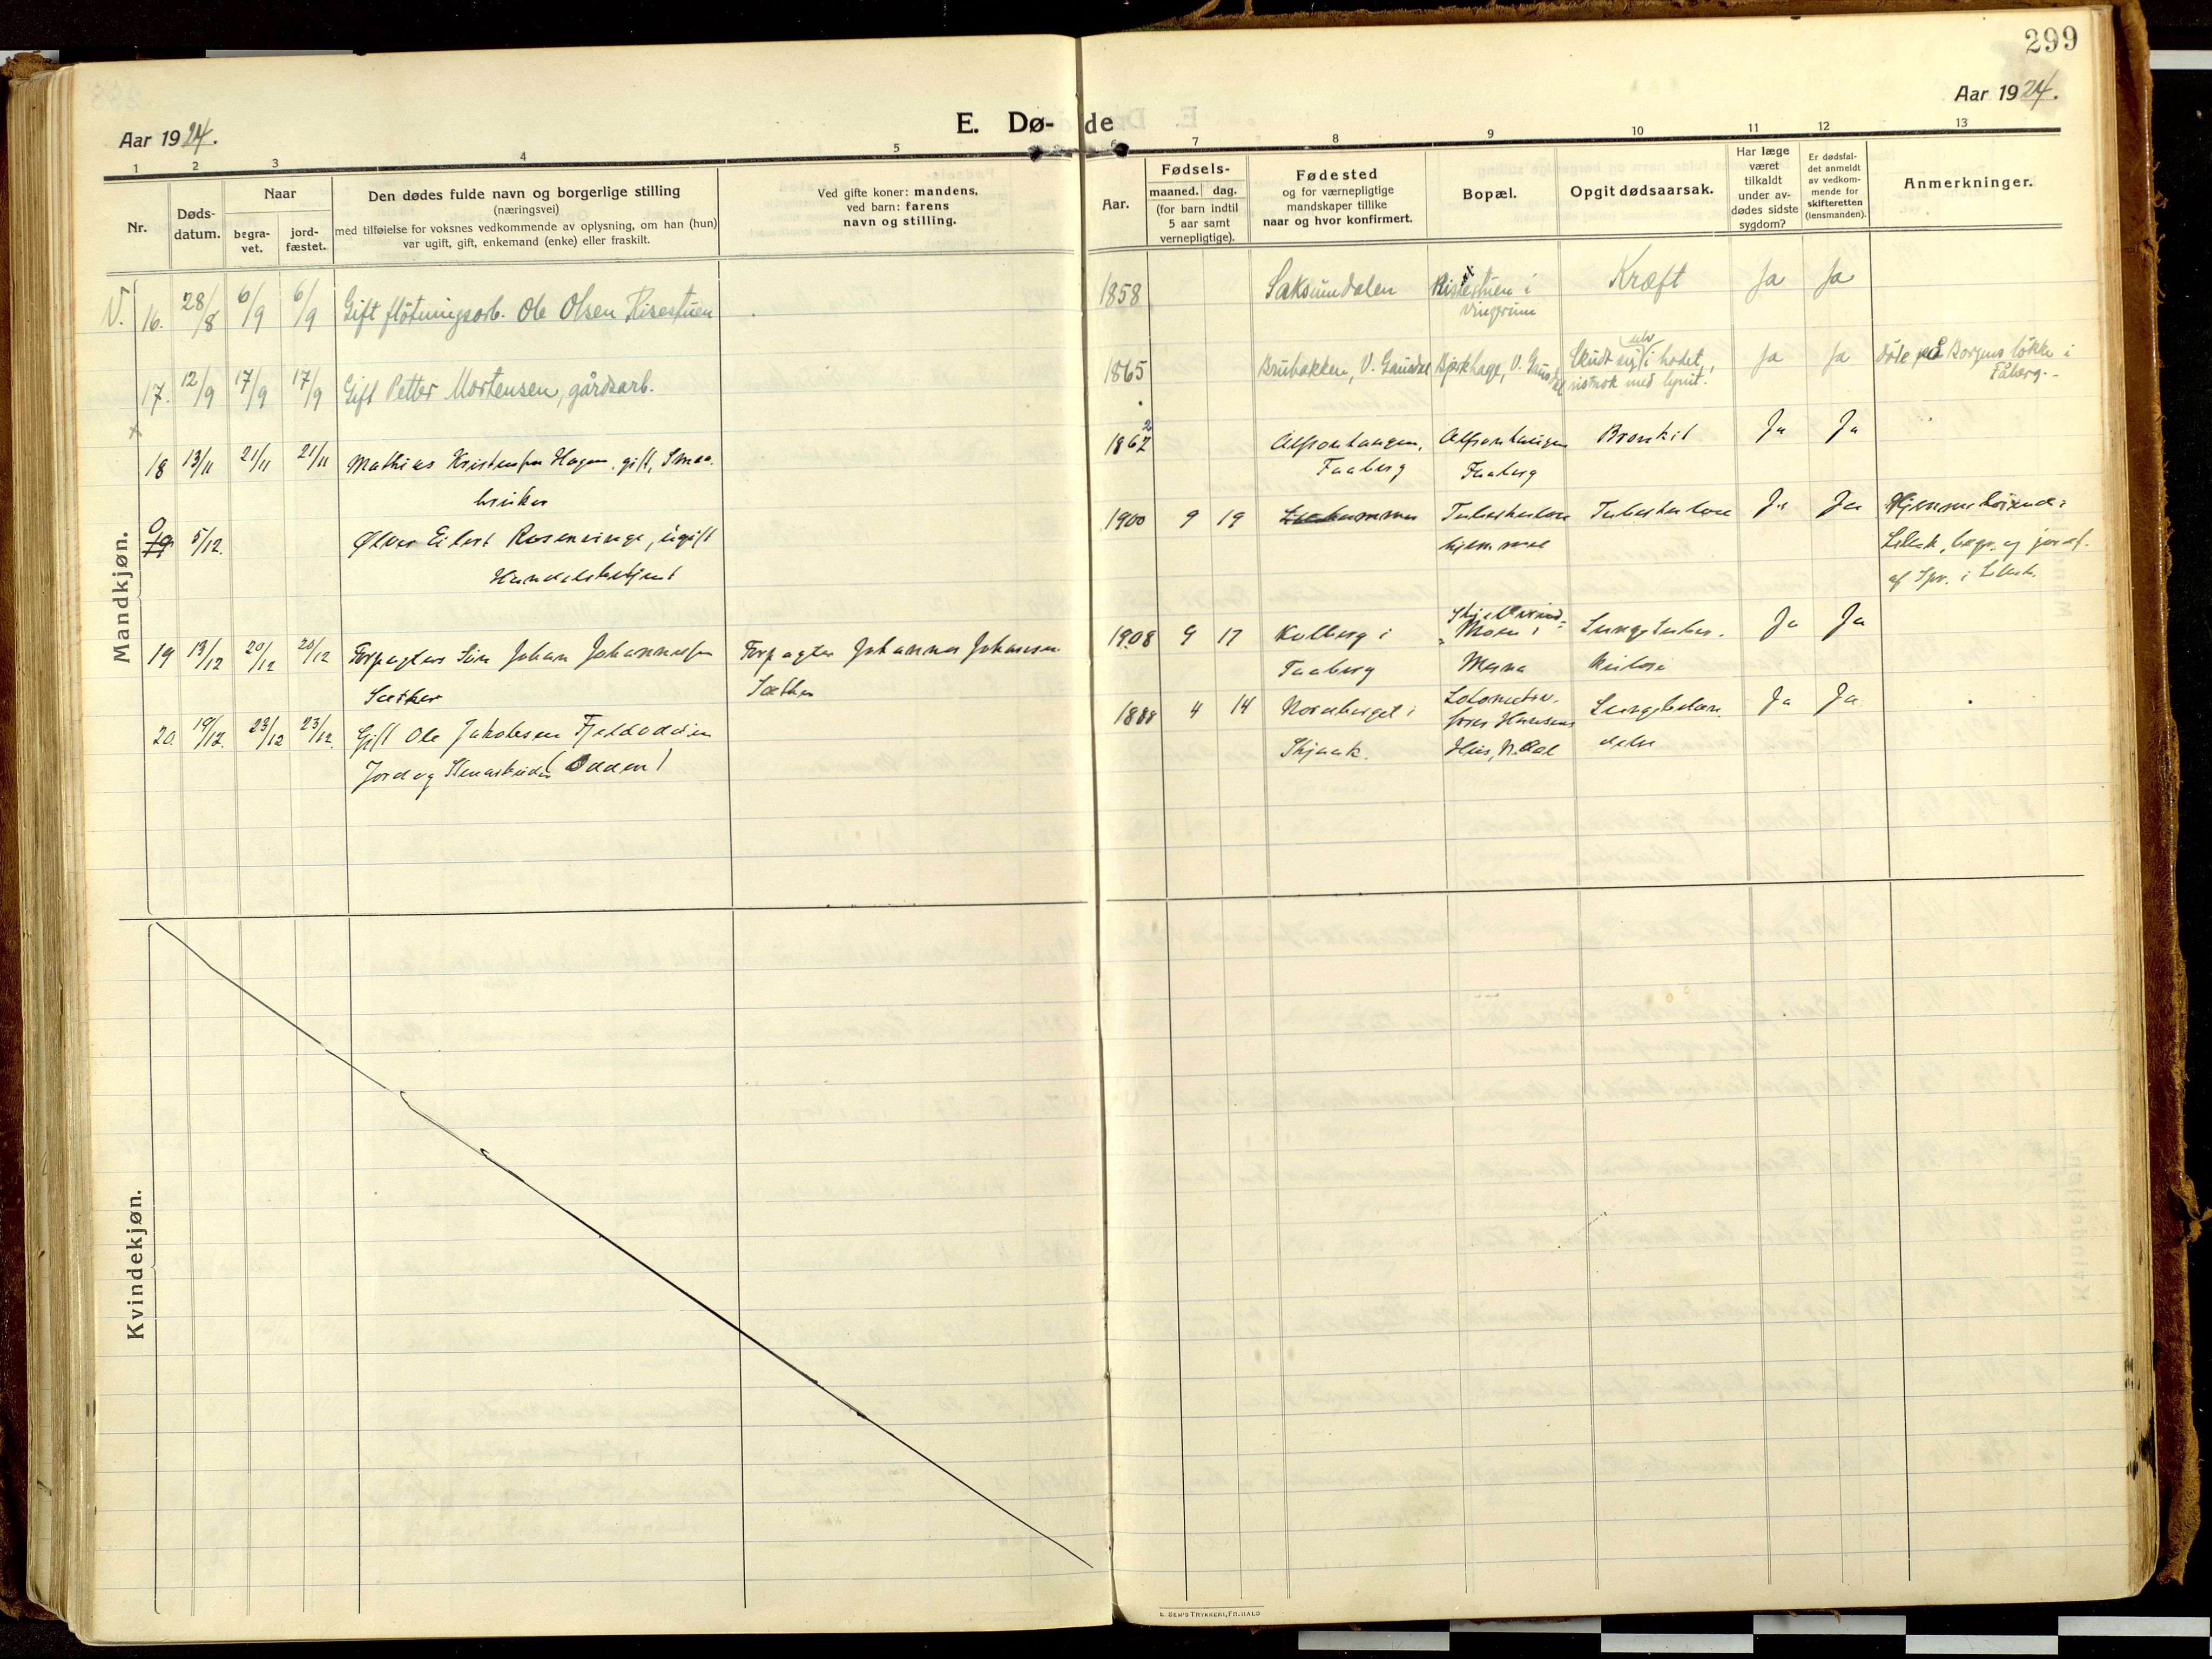 299
Aar 1924.
Aar 1924.
E. Dø- de
1 2 3 4 5 6 7 8 9 10 11 12 13
Nr.
Døds-
datum.
Naar
begra-
vet.
jord-
fæstet.
Den dødes fulde navn og borgerlige stilling
(næringsvei)
med tilføielse for voksnes vedkommende av oplysning, om han (hun)
var ugift, gift, enkemand (enke) eller fraskilt.
Ved gifte koner: mandens,
ved barn: farens
navn og stilling.
Aar.
Fødsels-
maaned. dag.
(for barn indtil
5 aar samt
vernepligtige).
Fødested
og for værnepligtige
mandskaper tillike
naar og hvor konfirmert.
Bopæl.
Opgit dødsaarsak.
Har læge
været
tilkaldt
under av-
dødes sidste
sygdom?
Er dødsfal-
det anmeldt
av vedkom-
mende for
skifteretten
(lensmanden).
Anmerkninger.
Mandkjøn.
V. 16. 28/8 6/9 6/9 Gift fløtningsarb. Ole Olsen Risestuen 1858 Saksumdalen Risestuen i Kræft Ja Ja
Vingrum
17. 12/9 17/9 17/9 Gift Petter Mortensen, gårdsarb. 1865 Brubakken, V. Gausdal Bjørkhage, V. Gausdal Skudt sig selv i hodet, Ja Ja Døde på Borgens løkke i
med Fåberg.
18 13/11 21/11 21/11 Mathias Kristensen Hagen, gift, Smaa- 1862 Faaberg Faaberg Bronkit Ja Ja
bruker
19 5/12 Eilert Rosenvinge, ugift 1900 9 19 Lillehammer Tuberkulose Tuberkulose Ja Ja Hjemmehørende i
Handelsbetjent hjemmet Lilleh., begr. og jordf.
af Spr. i Lilleh.
19 13/12 20/12 20/12 Forpagters Søn Johan Johannesen Forpagter Johannes Johansen 1908 9 17 Kolberg i Moen i Lungetuber- Ja Ja
Sæther Sæther Faaberg Mesna kulose
20. 19/12. 23/12 23/12. Gift Ole Jakobsen Fjeldodden 1888 4 14 Nordberget i Hansens Lungebetæn- Ja Ja
Jord og Stenarbeider (Odden) Skjaak. Hus, N. Aal delse
Kvindekjøn.